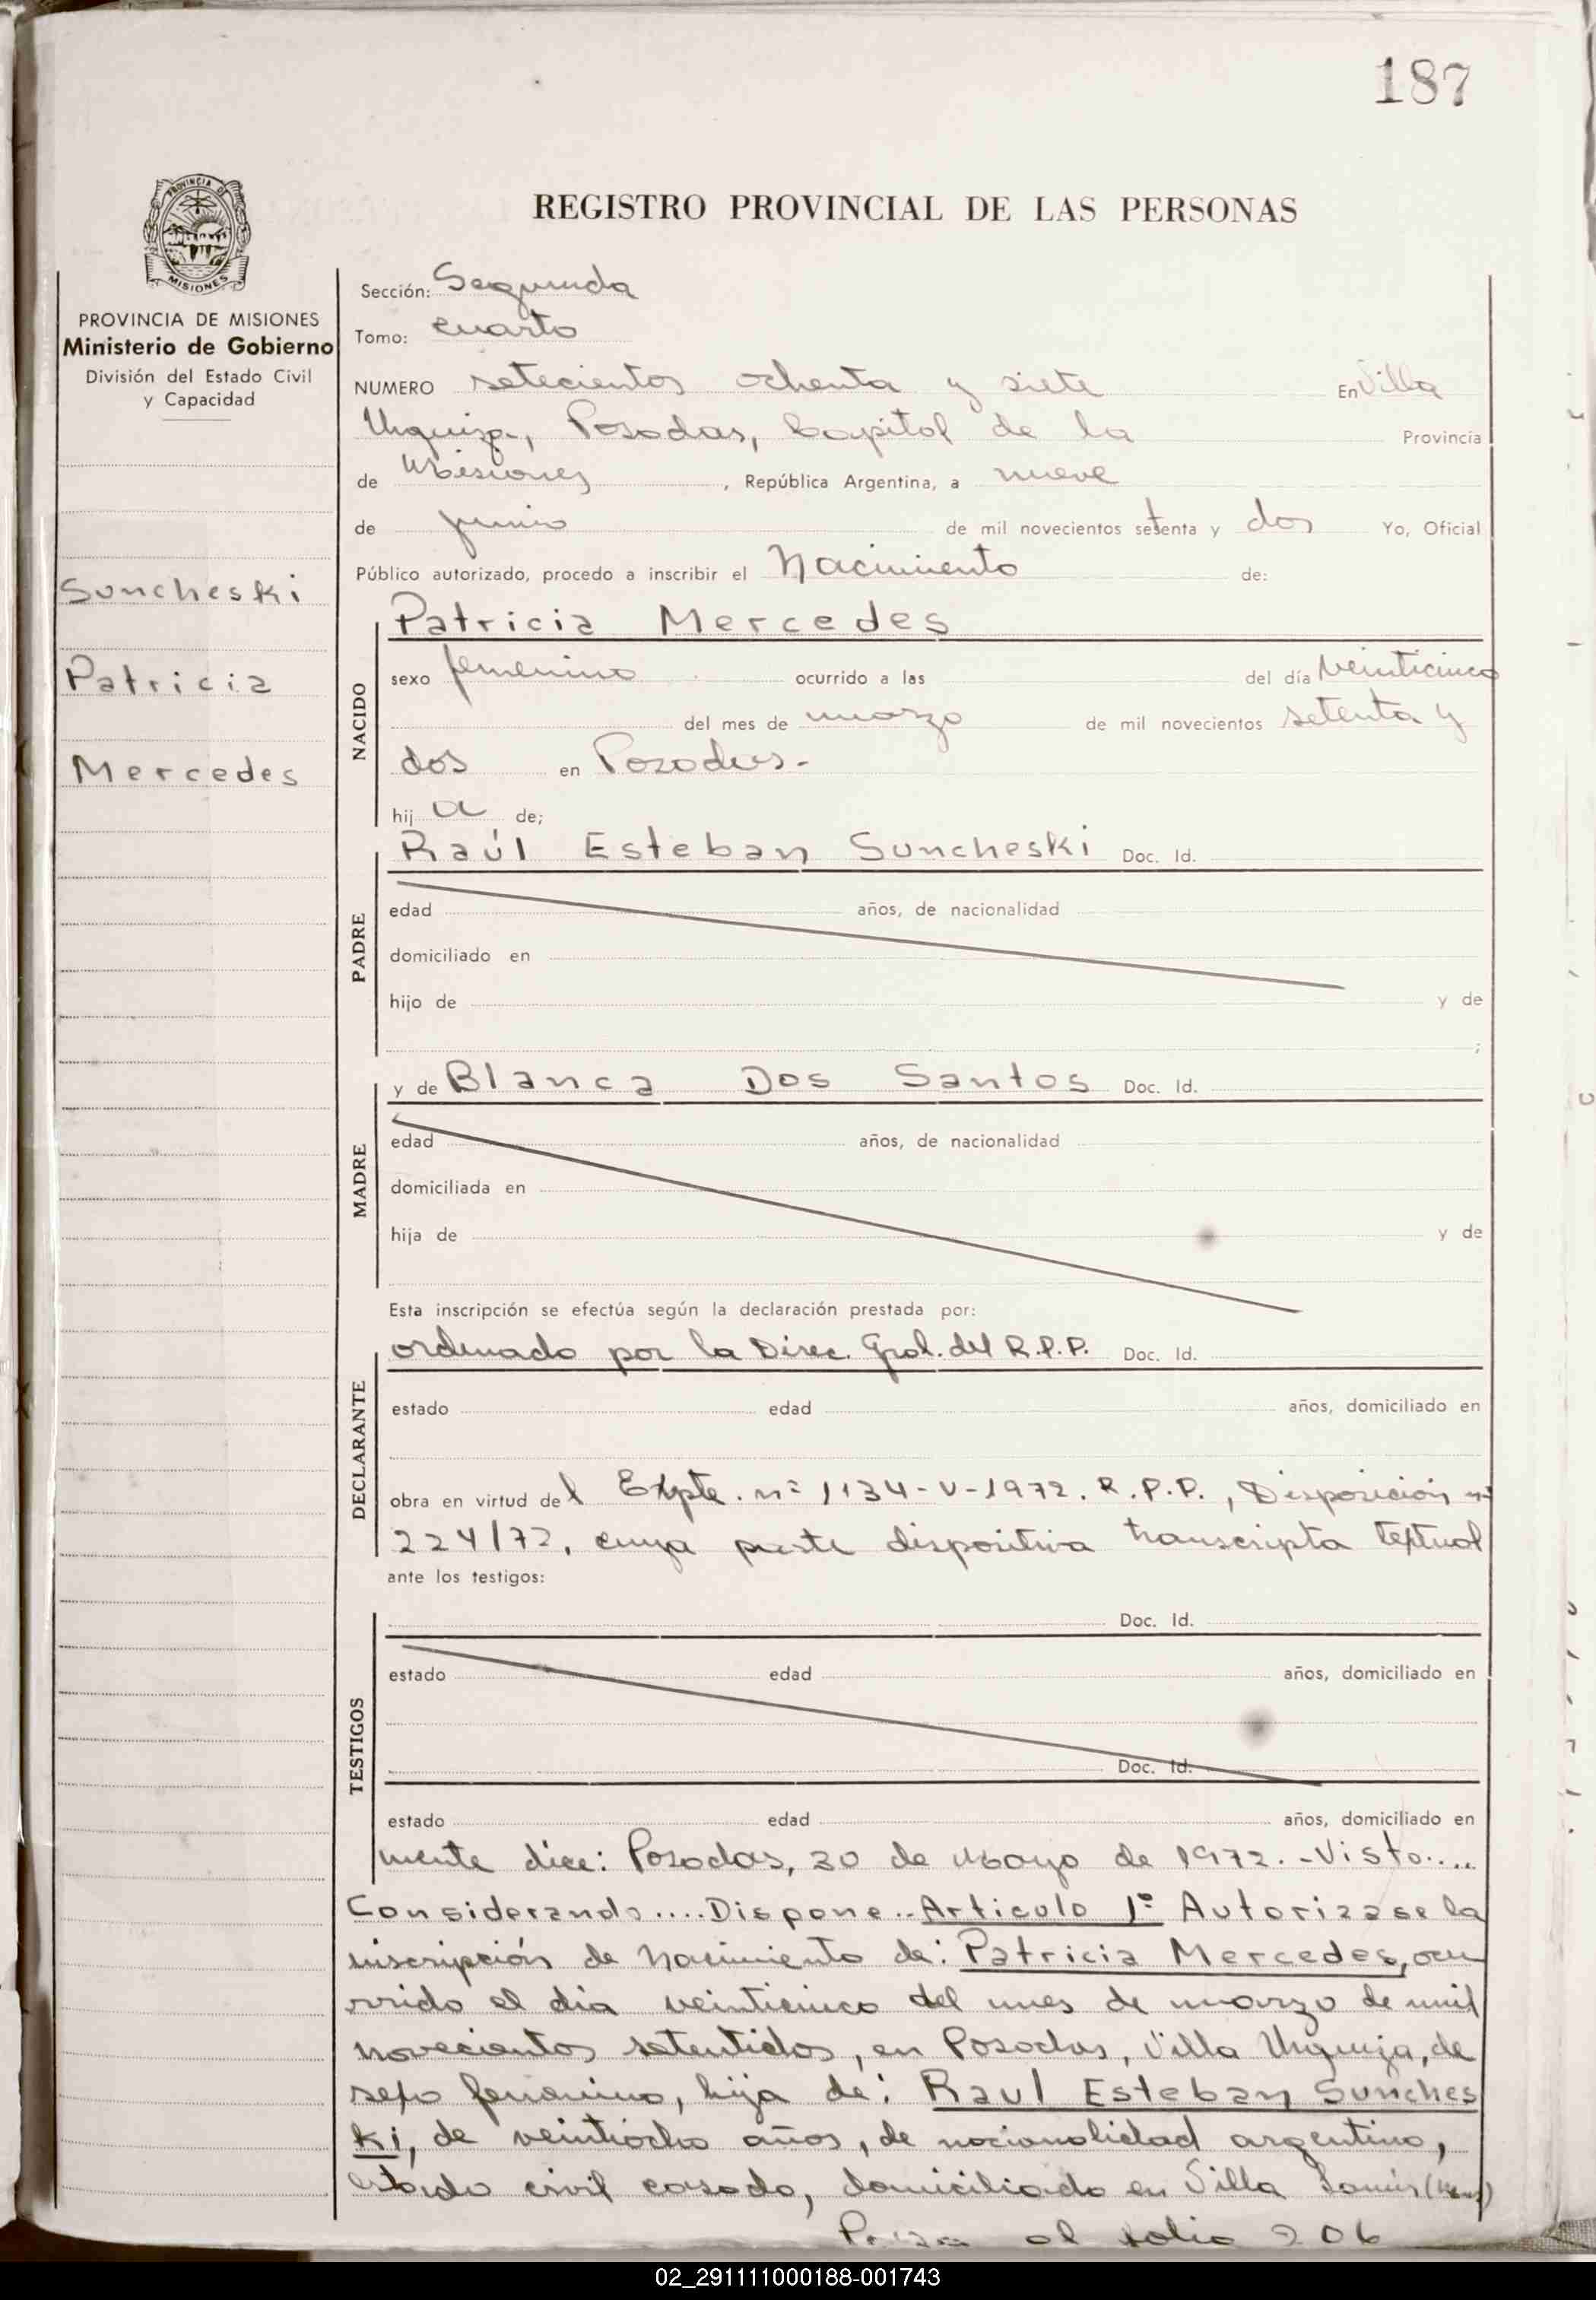 187
PROVINCIA DE
MISIONES
REGISTRO PROVINCIAL DE LAS PERSONAS
PROVINCIA DE MISIONES
Ministerio de Gobierno
División del Estado Civil
y Capacidad
Suncheski
Patricia
Mercedes
Sección: Segunda
Tomo: cuarto
NUMERO setecientos ochenta y siete En Villa
Urquiza, Posadas, Capital de la Provincia
de Misiones, República Argentina, a nueve
de junio de mil novecientos setenta y dos Yo, Oficial
Público autorizado, procedo a inscribir el Nacimiento de:
NACIDO
Patricia Mercedes
sexo femenino ocurrido a las del día veinticinco
del mes de marzo de mil novecientos setenta y
dos en Posadas.-
hija de;
PADRE
Raúl Esteban Suncheski Doc. Id.
edad años, de nacionalidad
domiciliado en
hijo de y de
;
MADRE
y de Blanca Dos Santos Doc. Id.
edad años, de nacionalidad
domiciliada en
hija de y de
Esta inscripción se efectúa según la declaración prestada por:
DECLARANTE
ordenado por la Direc. Gral. del R.P.P. Doc. Id.
estado edad años, domiciliado en
obra en virtud del Expte. nº 1134-V-1972. R.P.P., Disposición nº
224/72, cuya parte dispositiva transcripta textual
ante los testigos:
TESTIGOS
Doc. Id.
estado edad años, domiciliado en
Doc. Id.
estado edad años, domiciliado en
mente dice: Posadas, 30 de Mayo de 1972.-Visto....
Considerando....Dispone..Articulo 1º Autorizase la
inscripción de nacimiento de: Patricia Mercedes, ocu
rrido el dia veinticinco del mes de marzo de mil
novecientos setentidos, en Posadas, Villa Urquiza, de
sexo femenino, hija de: Raul Esteban Sunches
ki, de veintiocho años, de nacionalidad argentino,
estado civil casado, domiciliado en Villa Lanús
al folio 206
02_291111000188-001743